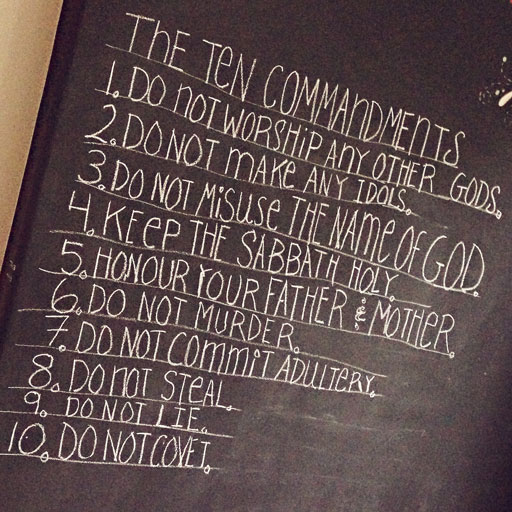 The TEN COMMANDMENTS
1. DO NOT WORSHIP ANY OTHER GODS.
2. DO NOT MAKE ANY IDOLS.
3. DO NOT MISUSE THE NAME OF GOD.
4. KEEP THE SABBATH HOLY.
5. HONOUR YOUR FATHER & MOTHER.
6. DO NOT MURDER.
7. DO NOT COMMIT ADULTERY.
8. DO NOT STEAL.
9. DO NOT LIE.
10. DO NOT COVET.